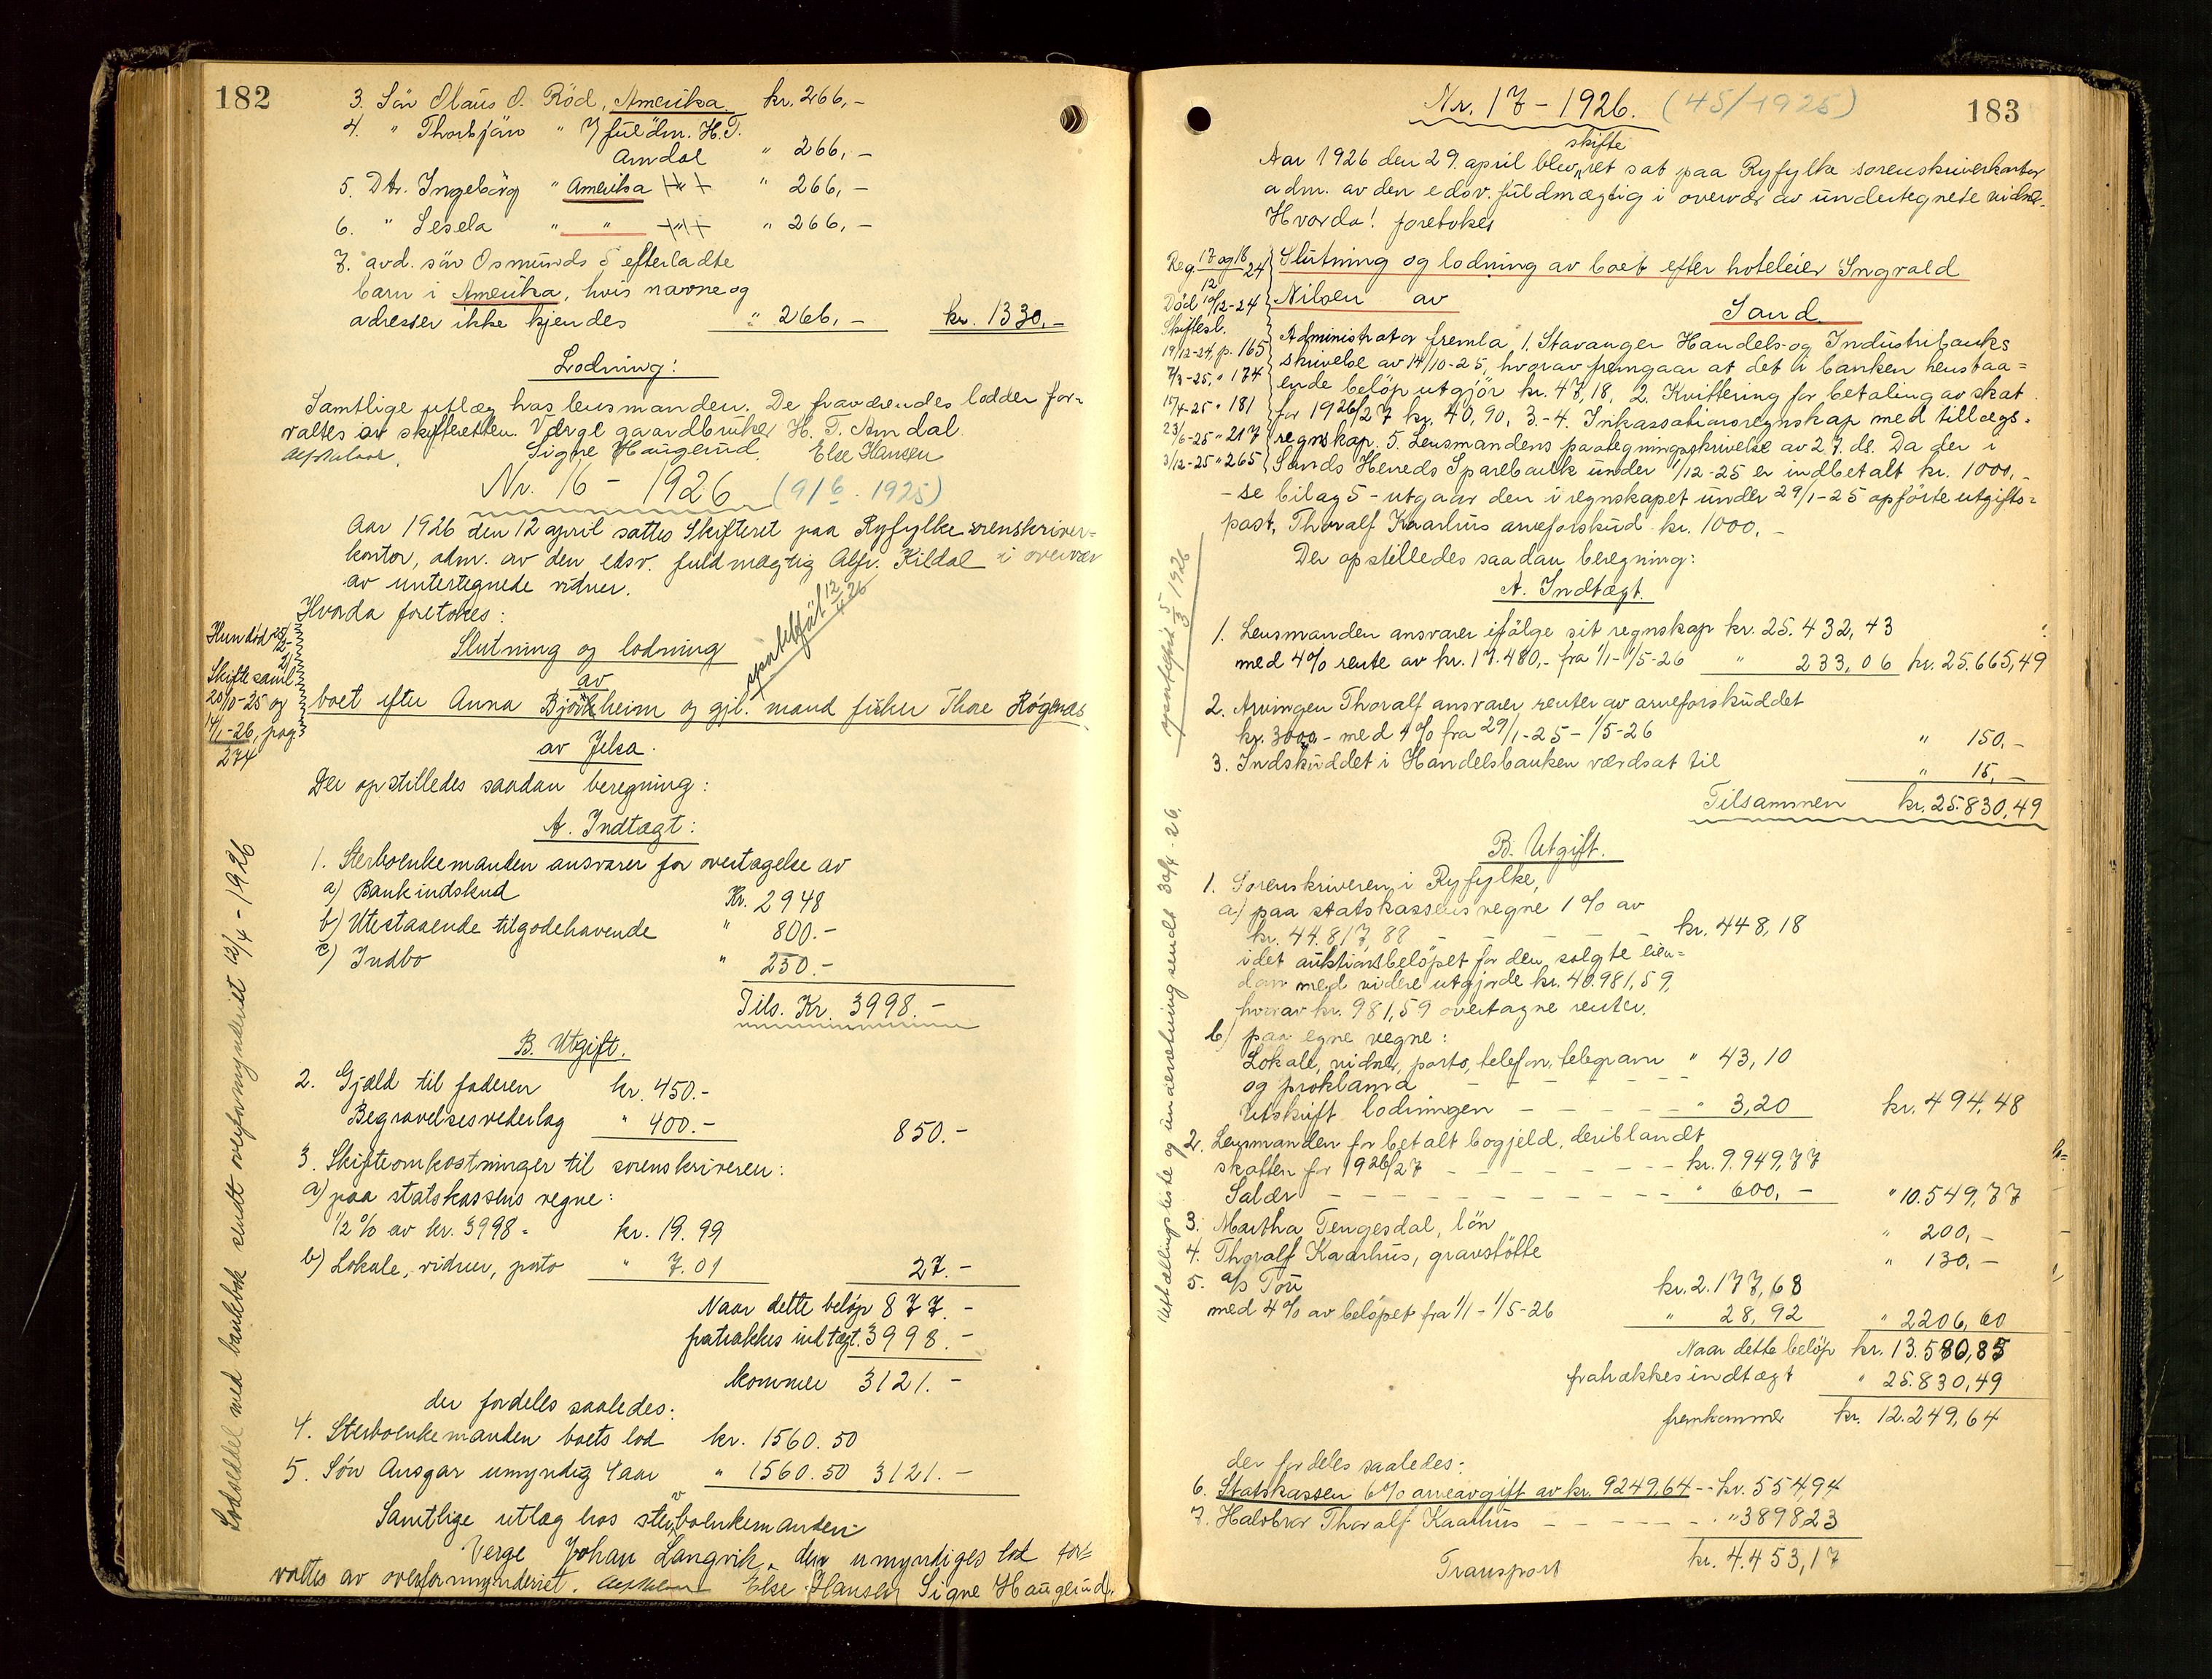 182
3. Sön Olaus O. Röd, Amerika kr. 266,-
4. " Thorbjörn " v/ fuldm. H.T.
Amdal " 266,-
5. Dtr. Ingeborg " Amerika " 266,-
6. " Sesela " " " 266,-
7. avd. sön Osmunds 5 efterladte
barn i Amerika, hvis navne og
adresser ikke kjendes " 266,- kr. 1330,-
Lodning:
Samtlige utlæg hos lensmanden. De fraværendes lodder for-
valtes av skifteretten. Værge gaardbruker H. T. Amdal
Signe Haugerud. Else Hansen
Nr. 16 - 1926 (91/6. 1925)
Aar 1926 den 12 april sattes Skifteret paa Ryfylke srenskriver-
kontor, adm. av den edsv. fuldmægtig Alfr. Kildal i overvær
av untertegnede vidner.
Hvorda foretokes:
Slutning og lodning
av
boet efter Anna Björkheim og gjl. mand fisker Thore Høgenæs
av Jelsa.
Hun död 25/2-
Skiftesaml.
20/10-25 og
14/1-26, pag
274
Der opstilledes saadan beregning:
A. Indtægt:
1. Sterboenkemanden ansvarer for overtagelse av
a) Bankindskud Kr. 2948
b) Utestaaende tilgodehavende " 800.-
c) Indbo " 250.-
Tils. Kr. 3998.-
B. Utgift.
2. Gjæld til faderen kr. 450.-
Begravelsesvederlag " 400.- 850.-
3. Skifteomkostninger til sorenskriveren:
a) paa statskassens vegne:
1/2 % av kr. 3998 = kr. 19.99
b) Lokale, vidner, porto " 7.01 27.-
Naar dette beløp 877.-
fratrækkes indtægt. 3998.-
kommer 3121.-
der fordeles saaledes:
4. Sterboenkemanden boets lod kr. 1560.50
5. Sön Ansgar umyndig 4 aar " 1560.50 3121.-
Samtlige utlæg hos sterboenkemanden
Verge Johan Langvik, den umyndiges lod for-
valtes av overformynderiet. Else Hansen Signe Haugerud.
Lodseddel med bankbok sendt overformynderiet 12/4-1926
183
Nr. 17 - 1926. (45/1925)
skifte
Aar 1926 den 29. april blev ret sat paa Ryfylke sorenskriverkontor
adm. av den edsv. fuldmægtig i overvær av undertegnede vidne.
Hvorda! foretokes
Slutning og lodning av boet efter hoteleier Ingvald
Nilsen av Sand.
Reg. 17 og 18/12 24
Död 10/12-24
Skiftesl.
19/12-24, p. 165
7/3-25, " 174
17/4-25 " 181
23/6-25 " 217
3/12-25 " 265
Administrator fremla 1. Stavanger Handels- og Industribanks
skrivelse av 14/10-25, hvorav fremgaar at det i banken henstaa=
ende beløp utgjör kr. 47,18, 2. Kvittering for betaling av skat
for 1926/27 kr. 40,90, 3-4. Inkassationsregnskap med tillægs-
regnskap. 5. Lensmandens paategningsskrivelse av 27. ds. Da der i
Sands Herreds Sparebank under 1/12-25 er indbetalt kr. 1000,-
- se bilag 5 - utgaar den i regnskapet under 29/1-25 opförte utgifts=
post, Thoralf Kaarhus arveforskud kr. 1000.-
Der opstilledes saadan beregning:
A. Indtægt.
1. Lensmanden ansvarer ifölge sit regnskap kr. 25.432,43
med 4% rente av kr. 17.480,- fra 1/1-1/5-26 " 233,06 kr. 25.665,49
2. Arvingen Thoralf ansvarer renter av arveforskuddet
kr. 3000 - med 4% fra 29/1-25 - 1/5-26 " 150,-
3. Indskuddet i Handelsbanken værdsat til " 15,-
Tilsammen kr. 25.830,49
B. Utgift.
1. Sorenskriveren i Ryfylke,
a) paa statskassens vegne 1% av
kr. 44.817,88 - - - - kr. 448,18
idet auktionsbelöpet for den solgte eien=
dom med videre utgjorde kr. 40.981,59,
hvorav kr. 981,59 overtagne renter.
b) paa egne vegne:
Lokale, vidner, porto, telefon, telegram " 43,10
og proklama - - - - -
Utskrift lodningen - - - - - " 3,20 kr. 494,48
2. Lensmanden for betalt bogjeld, deriblandt
skatten for 1926/27 - - - - - - kr. 9.949,77
Salær - - - - - - - - " 600,- " 10.549,77
3. Martha Tengesdal, lön " 200,-
4. Thoralf Kaarhus, gravstötte " 130,-
5. a/s Tou kr. 2.177,68
med 4% av belöpet fra 1/1 - 1/5-26 " 28,92 " 2206,60
Naar dette belöp kr. 13.580,85
fratrækkes indtægt " 25.830,49
fremkommer kr. 12.249,64
der fordeles saaledes:
6. Statskassen 6% arveavgift av kr. 9249,64 -- kr. 554,94
7. Halvbror Thoralf Kaarhus - - - - - " 3898,23
Transport kr. 4.453,17